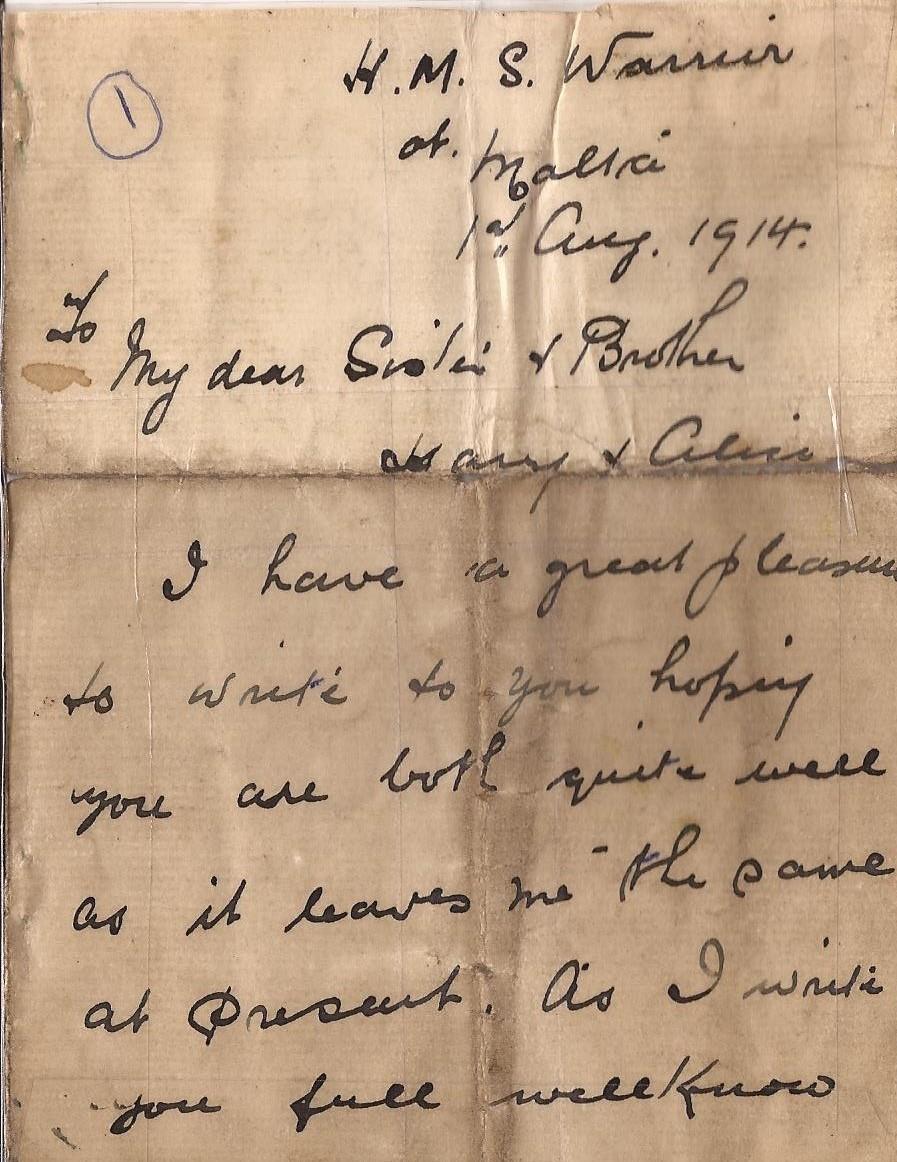 1
H.M.S. Warrior
at. Malta
1st Aug. 1914.
To
My dear Sister & Brother
Harry & Alice
I have a great pleasure
to write to you hoping
you are both quite well
as it leaves me the same
at present. As I write
you full well know